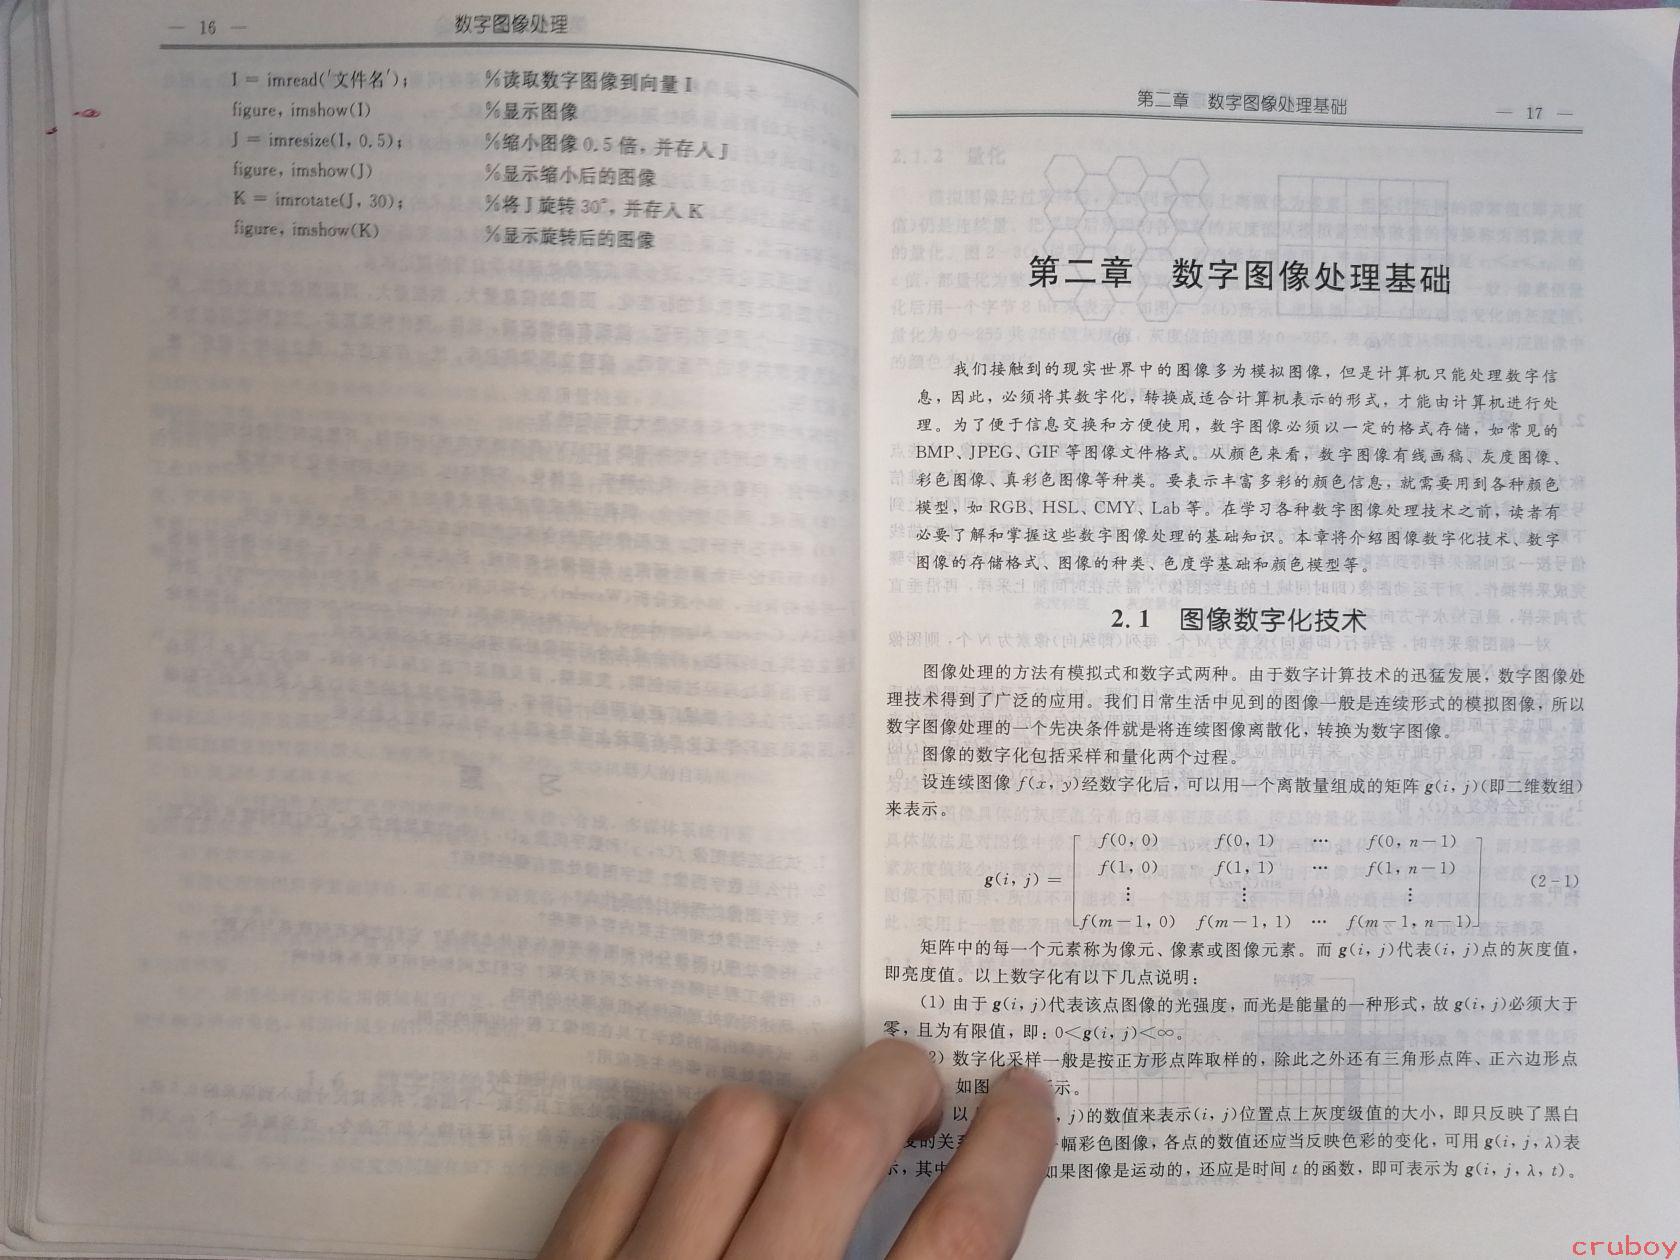 — 16 —
数字图像处理
I = imread('文件名'); %读取数字图像到向量 I
figure, imshow(I) %显示图像
J = imresize(I, 0.5); %缩小图像 0.5 倍，并存入 J
figure, imshow(J) %显示缩小后的图像
K = imrotate(J, 30); %将 J 旋转 30°，并存入 K
figure, imshow(K) %显示旋转后的图像
第二章 数字图像处理基础
— 17 —
第二章 数字图像处理基础
我们接触到的现实世界中的图像多为模拟图像，但是计算机只能处理数字信
息，因此，必须将其数字化，转换成适合计算机表示的形式，才能由计算机进行处
理。为了便于信息交换和方便使用，数字图像必须以一定的格式存储，如常见的
BMP、JPEG、GIF 等图像文件格式。从颜色来看，数字图像有线画稿、灰度图像、
彩色图像、真彩色图像等种类。要表示丰富多彩的颜色信息，就需要用到各种颜色
模型，如 RGB、HSL、CMY、Lab 等。在学习各种数字图像处理技术之前，读者有
必要了解和掌握这些数字图像处理的基础知识。本章将介绍图像数字化技术、数字
图像的存储格式、图像的种类、色度学基础和颜色模型等。
2.1 图像数字化技术
图像处理的方法有模拟式和数字式两种。由于数字计算技术的迅猛发展，数字图像处
理技术得到了广泛的应用。我们日常生活中见到的图像一般是连续形式的模拟图像，所以
数字图像处理的一个先决条件就是将连续图像离散化，转换为数字图像。
图像的数字化包括采样和量化两个过程。
设连续图像 f(x, y)经数字化后，可以用一个离散量组成的矩阵 g(i, j)(即二维数组)
来表示。
f(0, 0) f(0, 1) … f(0, n−1)
f(1, 0) f(1, 1) … f(1, n−1)
g(i, j) = (2-1)
⋮ ⋮ ⋮
f(m−1, 0) f(m−1, 1) … f(m−1, n−1)
矩阵中的每一个元素称为像元、像素或图像元素。而 g(i, j)代表(i, j)点的灰度值，
即亮度值。以上数字化有以下几点说明：
(1) 由于 g(i, j)代表该点图像的光强度，而光是能量的一种形式，故 g(i, j)必须大于
零，且为有限值，即：0<g(i, j)<∞。
2) 数字化采样一般是按正方形点阵取样的，除此之外还有三角形点阵、正六边形点
如图 示。
以 , j)的数值来表示(i, j)位置点上灰度级值的大小，即只反映了黑白
度的关系 幅彩色图像，各点的数值还应当反映色彩的变化，可用 g(i, j, λ)表
示，其中 如果图像是运动的，还应是时间 t 的函数，即可表示为 g(i, j, λ, t)。
cruboy